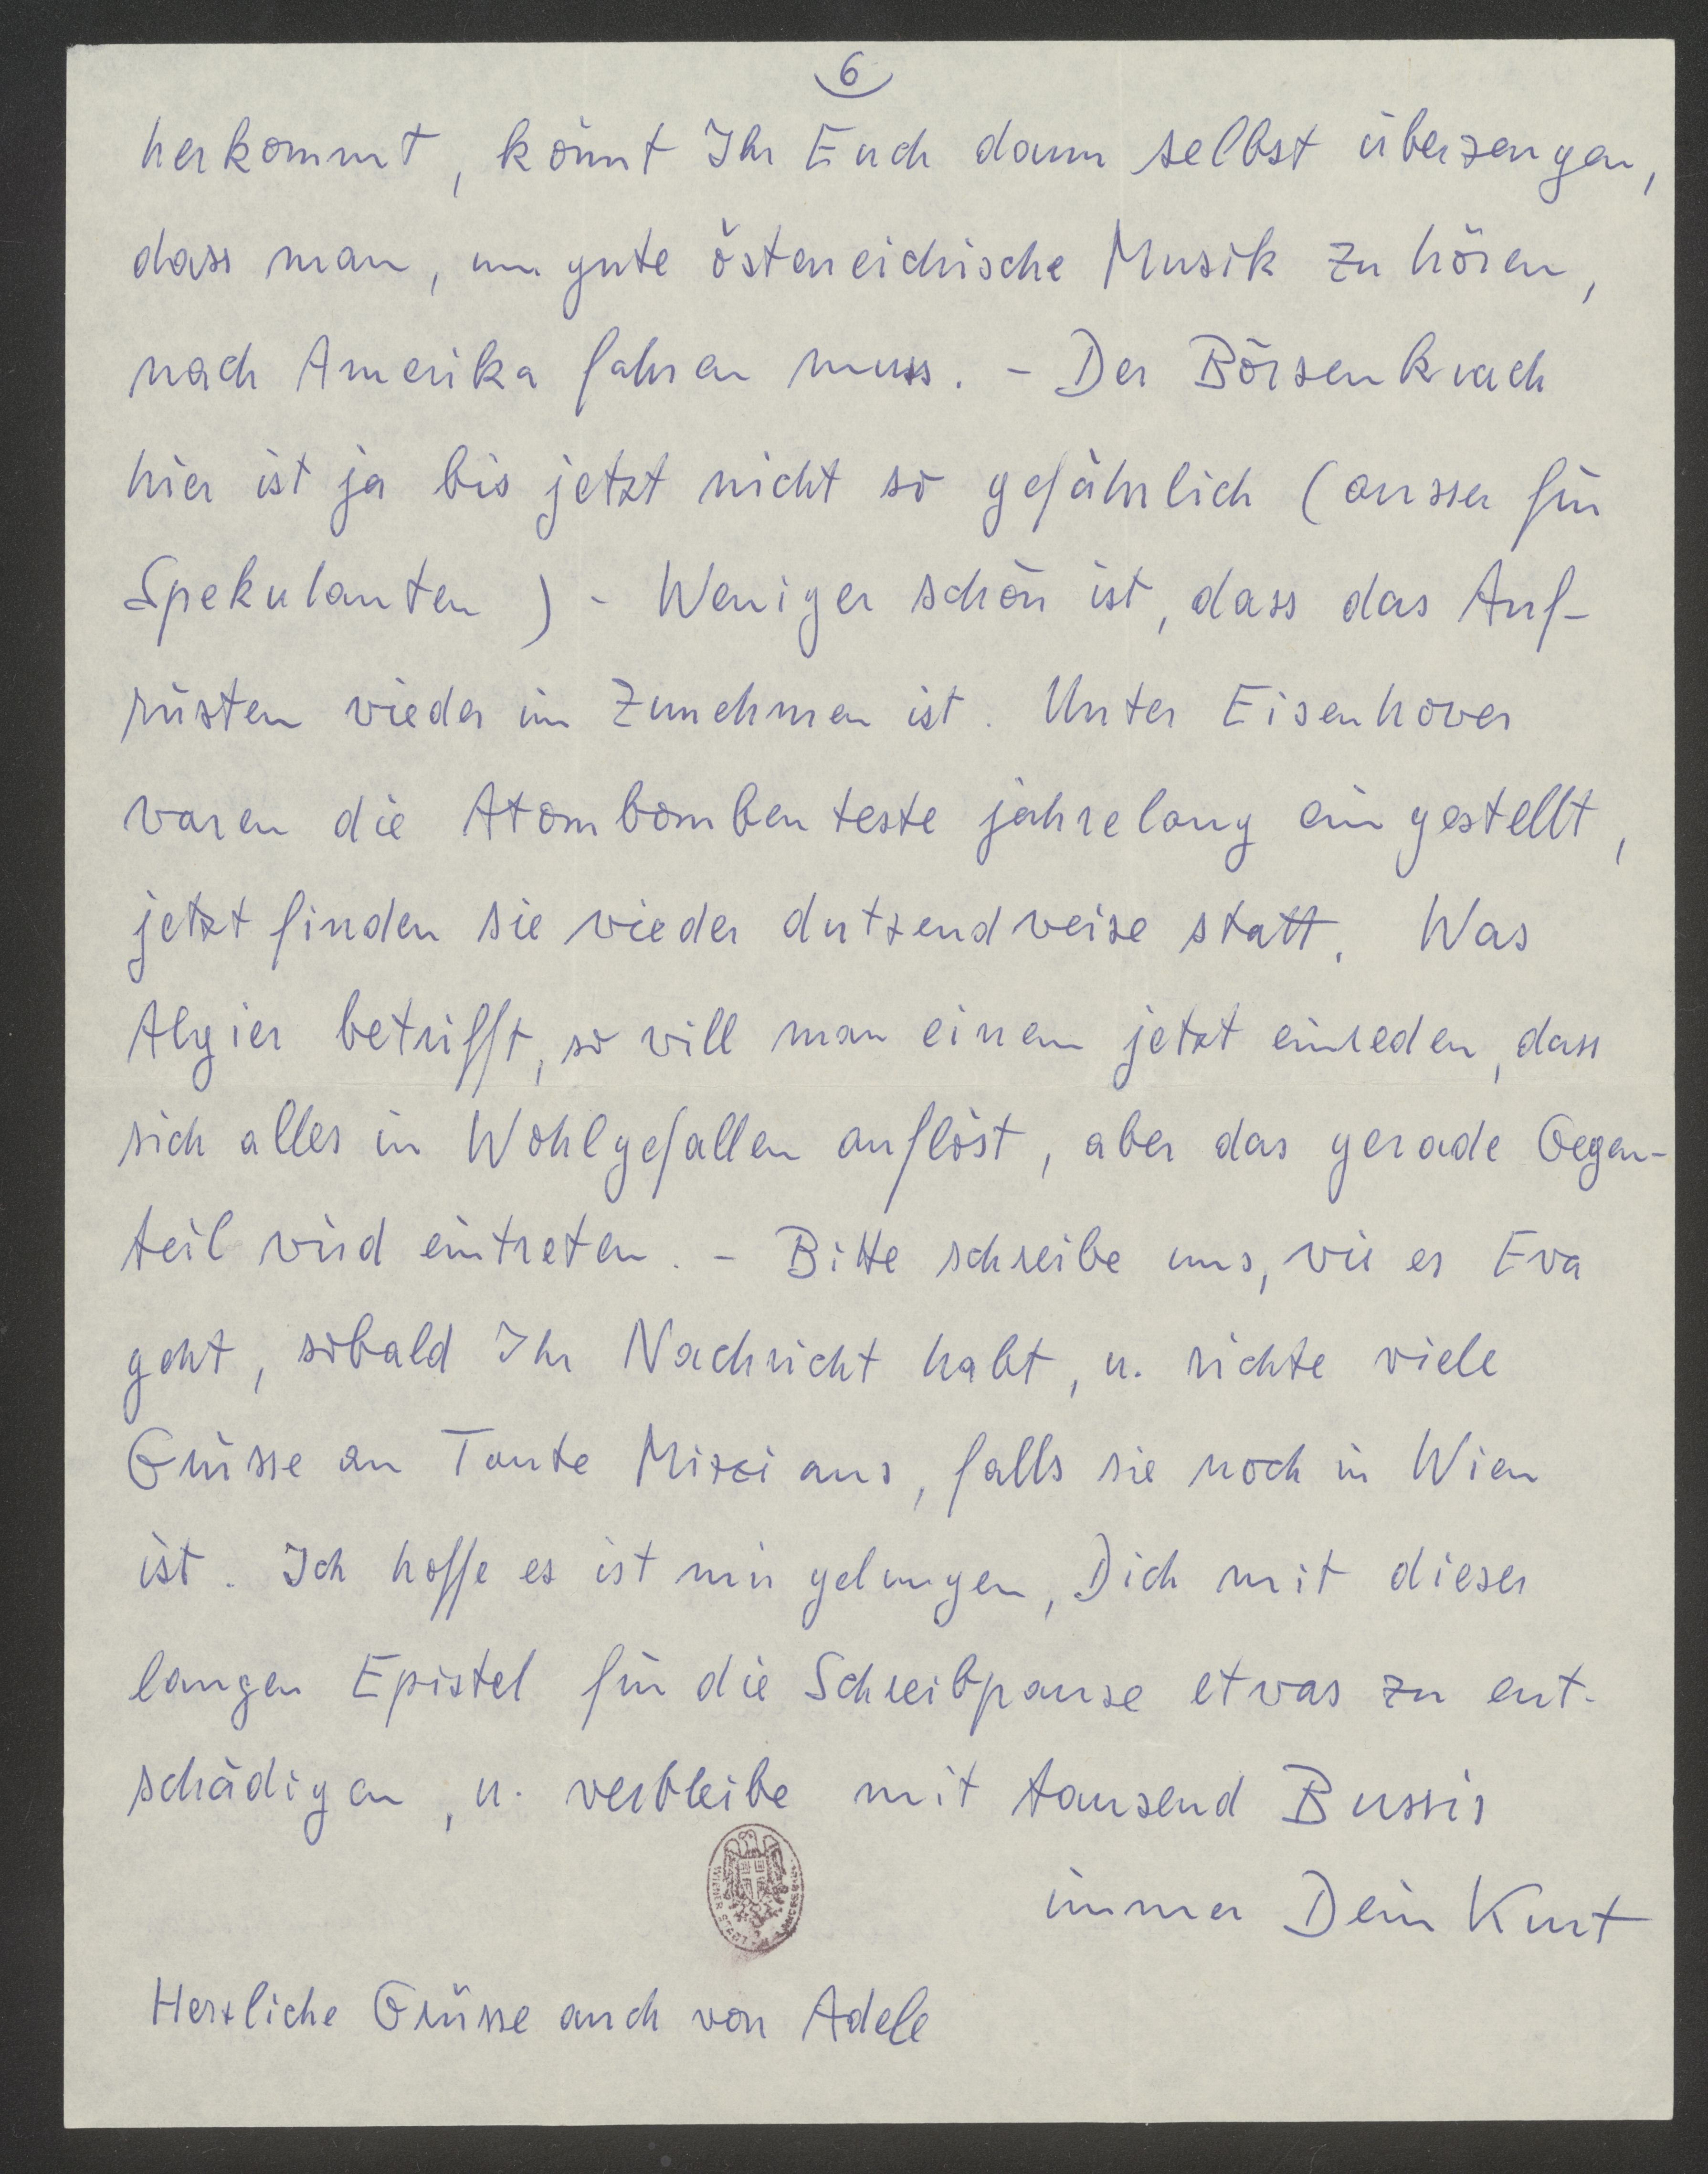 6
herkommt, könnt Ihr Euch dann selbst überzeugen,
dass man, um gute österreichische Musik zu hören,
nach Amerika fahren muss. - Der Börsenkrach
hier ist ja bis jetzt nicht so gefährlich (ausser für
Spekulanten) - Weniger schön ist, dass das Auf-
rüsten wieder im Zunehmen ist. Unter Eisenhower
waren die Atombombenteste jahrelang eingestellt,
jetzt finden sie wieder dutzendweise statt. Was
Algier betrifft, so will man einem jetzt einreden, dass
sich alles in Wohlgefallen auflöst, aber das gerade Gegen-
teil wird eintreten. - Bitte schreibe uns, wie es Eva
geht, sobald Ihr Nachricht habt, u. richte viele
Grüsse an Tante Mizci aus, falls sie noch in Wien
ist. Ich hoffe es ist mir gelungen, Dich mit dieser
langen Epistel für die Schreibpause etwas zu ent-
schädigen, u. verbleibe mit tausend Bussis
immer Dein Kurt
Herzliche Grüsse auch von Adele